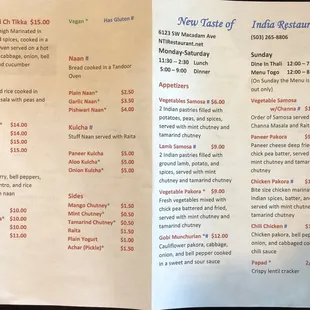 Ch Tikka $15.00
Marinated in
spices, cooked in a
oven served on a hot
cabbage, onion, bell
and cucumber
cooked in rice
masala with peas and
$14.00
$15.00
$14.00
$14.00
bell peppers,
and rice
naan
$10.00
$10.00
$10.00
$11.00
Vegan * Has Gluten #
Naan #
Bread cooked in a Tandoor
Oven
Plain Naan* $2.50
Garlic Naan* $3.50
Pishwari Naan $4.00
Kulcha #
Stuff Naan served with Raita
Paneer Kulcha $5.00
Aloo Kulcha* $5.00
Onion Kulcha* $5.00
Sides
Mango Chutney* $1.50
Mint Chutney* $0.50
Tamarind Chutney* $0.50
Raita $1.50
Plain Yogurt $1.00
Achar (Pickle)* $1.50
New Taste of
6121 SW Macadam Ave
NTIRestaurant.net
Monday-Saturday
11:30 – 2:30 Lunch
5:00 – 9:00 Dinner
Appetizers
Vegetables Samosa # $6.00
2 Indian pastries filled with
potatoes, peas, and spices,
served with mint chutney and
tamarind chutney
Lamb Samosa # $9.00
2 Indian pastries filled with
ground lamb, potato, and
spices, served with mint
chutney and tamarind chutney
Vegetable Pakora * $6.00
Fresh vegetables mixed with
chick pea battered and fried,
served with mint chutney and
tamarind chutney
Gobi Munchurian *# $12.00
Cauliflower pakora, cabbage,
onion, and bell pepper cooked
in a sweet and sour sauce
India Restaur
(503) 265-8806
Sunday
Dine In Thali 12:00 – 7
Menu Togo 12:00 –
(On Sunday the Menu is
out only)
Vegetable Samosa
w/Channa #
Order of Samosa served
Channa Masala and Rait
Paneer Pakora
Paneer cheese deep fried
chick pea batter, served
mint chutney and
tamarind chutney
Chicken Pakora #
Bite size chicken marina
Indian spices, batter, an
served with mint chutney
tamarind chutney
Chili Chicken #
Chicken pakora, bell pepp
onion, and cabbaged co
chili sauce
Papad *
Crispy lentil cracker